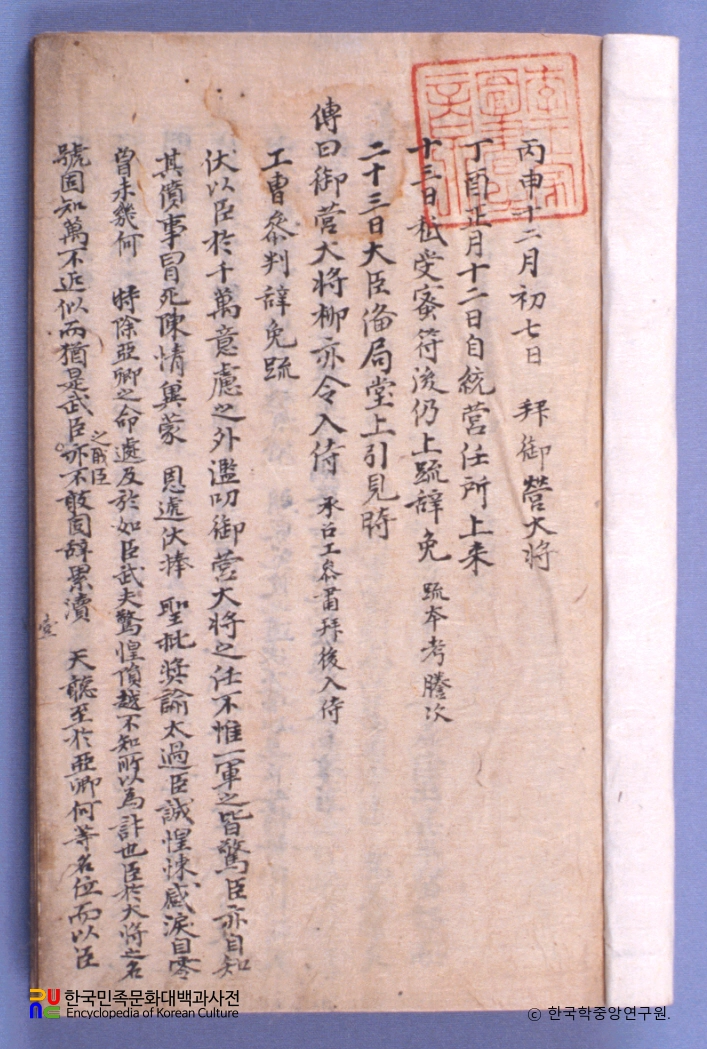 丙申十二月初七日 拜御營大將
丁酉正月十二日自統營任所上来
十三日祗受蜜符後仍上疏辞免 疏本考謄次
二十三日大臣俻局堂上引見時
傳曰御营大将柳亦令入侍 承召工叅肅拜後入侍
工曹叅判辞免疏
伏以臣於千萬意慮之外濫叨御营大将之任不惟一軍之皆驚臣亦自知
其僨事冒死陳情兾蒙 恩遞伏捧 聖批奬諭太過臣誠惶悚感淚自零
曾未幾何 特除亞卿之命處及於如臣武夫驚惶隕越不知所以為計也臣於大将之名
號固知萬不近似而猶是武臣亦不敢固辞累瀆 天聽至於亞卿何等名位而以臣
之臣
한국민족문화대백과사전
Encyclopedia of Korean Culture
ⓒ 한국학중앙연구원.